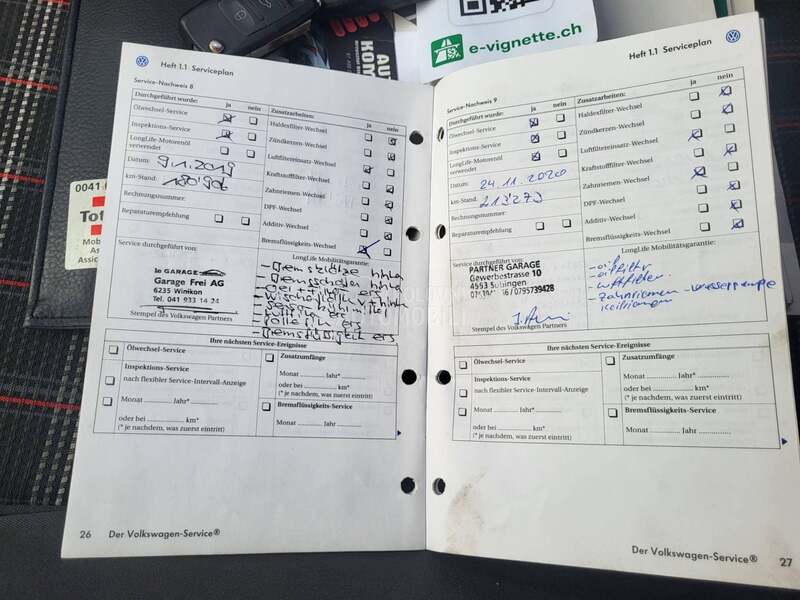 e-vignette.ch
AU
KOM
0041
Tot
Mob
Ass
Assic
Heft 1.1 Serviceplan
Service-Nachweis 8
Durchgeführt wurde: ja nein
Ölwechsel-Service
Inspektions-Service
LongLife-Motorenöl
verwendet
Datum: 9.1.2019
km-Stand: 180'906
Rechnungsnummer:
Reparaturempfehlung
Zusatzarbeiten: ja nein
Haldexfilter-Wechsel
Zündkerzen-Wechsel
Luftfiltereinsatz-Wechsel
Kraftstofffilter-Wechsel
Zahnriemen-Wechsel
DPF-Wechsel
Additiv-Wechsel
Bremsflüssigkeits-Wechsel
Service durchgeführt von:
1a GARAGE
Garage Frei AG
6235 Winikon
Tel. 041 933 14 24
Stempel des Volkswagen Partners
LongLife Mobilitätsgarantie:
- Bremsklötze
- Bremsscheiben
- Pollenfilter ers
- Bremsflüssigkeit ers
Ihre nächsten Service-Ereignisse
Ölwechsel-Service
Inspektions-Service
nach flexibler Service-Intervall-Anzeige
Monat ........... Jahr*..........
oder bei ............. km*
(* je nachdem, was zuerst eintritt)
Zusatzumfänge
Monat ........... Jahr*..........
oder bei ............. km*
(* je nachdem, was zuerst eintritt)
Bremsflüssigkeits-Service
Monat ........... Jahr ..........
26 Der Volkswagen-Service®
Heft 1.1 Serviceplan
Service-Nachweis 9
Durchgeführt wurde: ja nein
Ölwechsel-Service
Inspektions-Service
LongLife-Motorenöl
verwendet
Datum: 24.11.2020
km-Stand: 213'273
Rechnungsnummer:
Reparaturempfehlung
Zusatzarbeiten: ja nein
Haldexfilter-Wechsel
Zündkerzen-Wechsel
Luftfiltereinsatz-Wechsel
Kraftstofffilter-Wechsel
Zahnriemen-Wechsel
DPF-Wechsel
Additiv-Wechsel
Bremsflüssigkeits-Wechsel
Service durchgeführt von:
PARTNER GARAGE
Gewerbestrasse 10
4553 Subingen
0795739428
Stempel des Volkswagen Partners
LongLife Mobilitätsgarantie:
- ölfilter
- luftfilter
- Zahnriemen - wasserpumpe
keilriemen
Ihre nächsten Service-Ereignisse
Ölwechsel-Service
Inspektions-Service
nach flexibler Service-Intervall-Anzeige
Monat ........... Jahr*..........
oder bei ............. km*
(* je nachdem, was zuerst eintritt)
Zusatzumfänge
Monat ........... Jahr*..........
oder bei ............. km*
(* je nachdem, was zuerst eintritt)
Bremsflüssigkeits-Service
Monat ........... Jahr ..........
Der Volkswagen-Service® 27